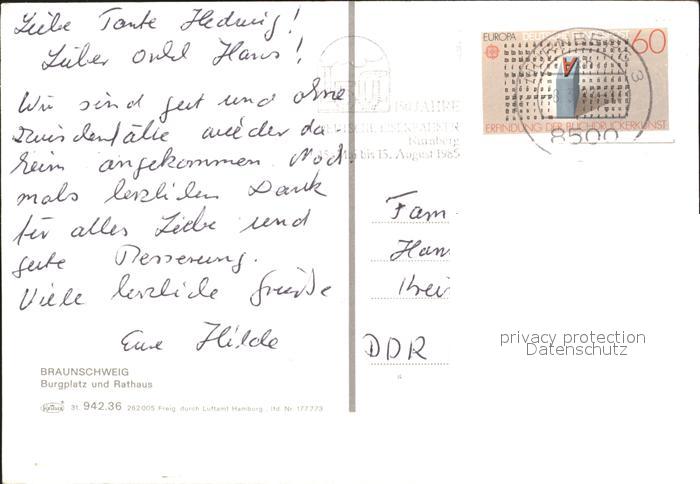 Liebe Tante Hedwig!
Lieber Onkel Hans!
Wir sind gut und ohne
Zwischenfälle wieder da
heim angekommen. Noch
mals herzlichen Dank
für alles Liebe und
gute Besserung.
Viele herzliche Grüße
Eure Hilde
BRAUNSCHWEIG
Burgplatz und Rathaus
31. 942.36 262005 Freig. durch Luftamt Hamburg, lfd. Nr. 177773
150 JAHRE
DEUTSCHE EISENBAHNEN
Nürnberg
bis 15. August 1985
EUROPA DEUTSCHE BUNDESPOST 60
ERFINDUNG DER BUCHDRUCKERKUNST
8500
Fam
Han
Krei
DDR
privacy protection
Datenschutz